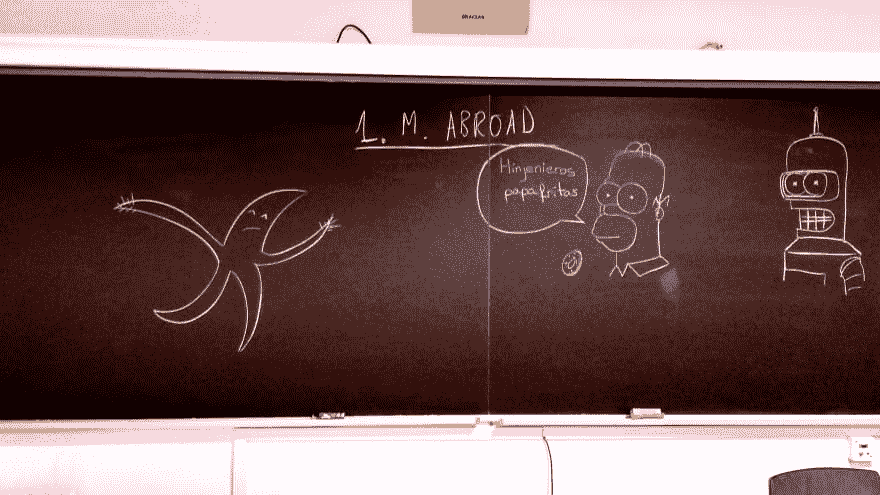 1. M. ABROAD
Hinjenieros
papafritas